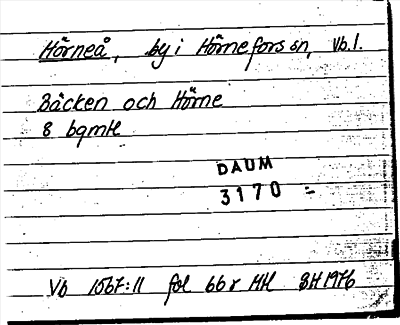 Hörneå, by i Hörnefors sn, Vb.l.
Bäcken och Hörne
8 bqmtl
DAUM
3170 =
Vb 1567:11 fol 66r MH BH 1976